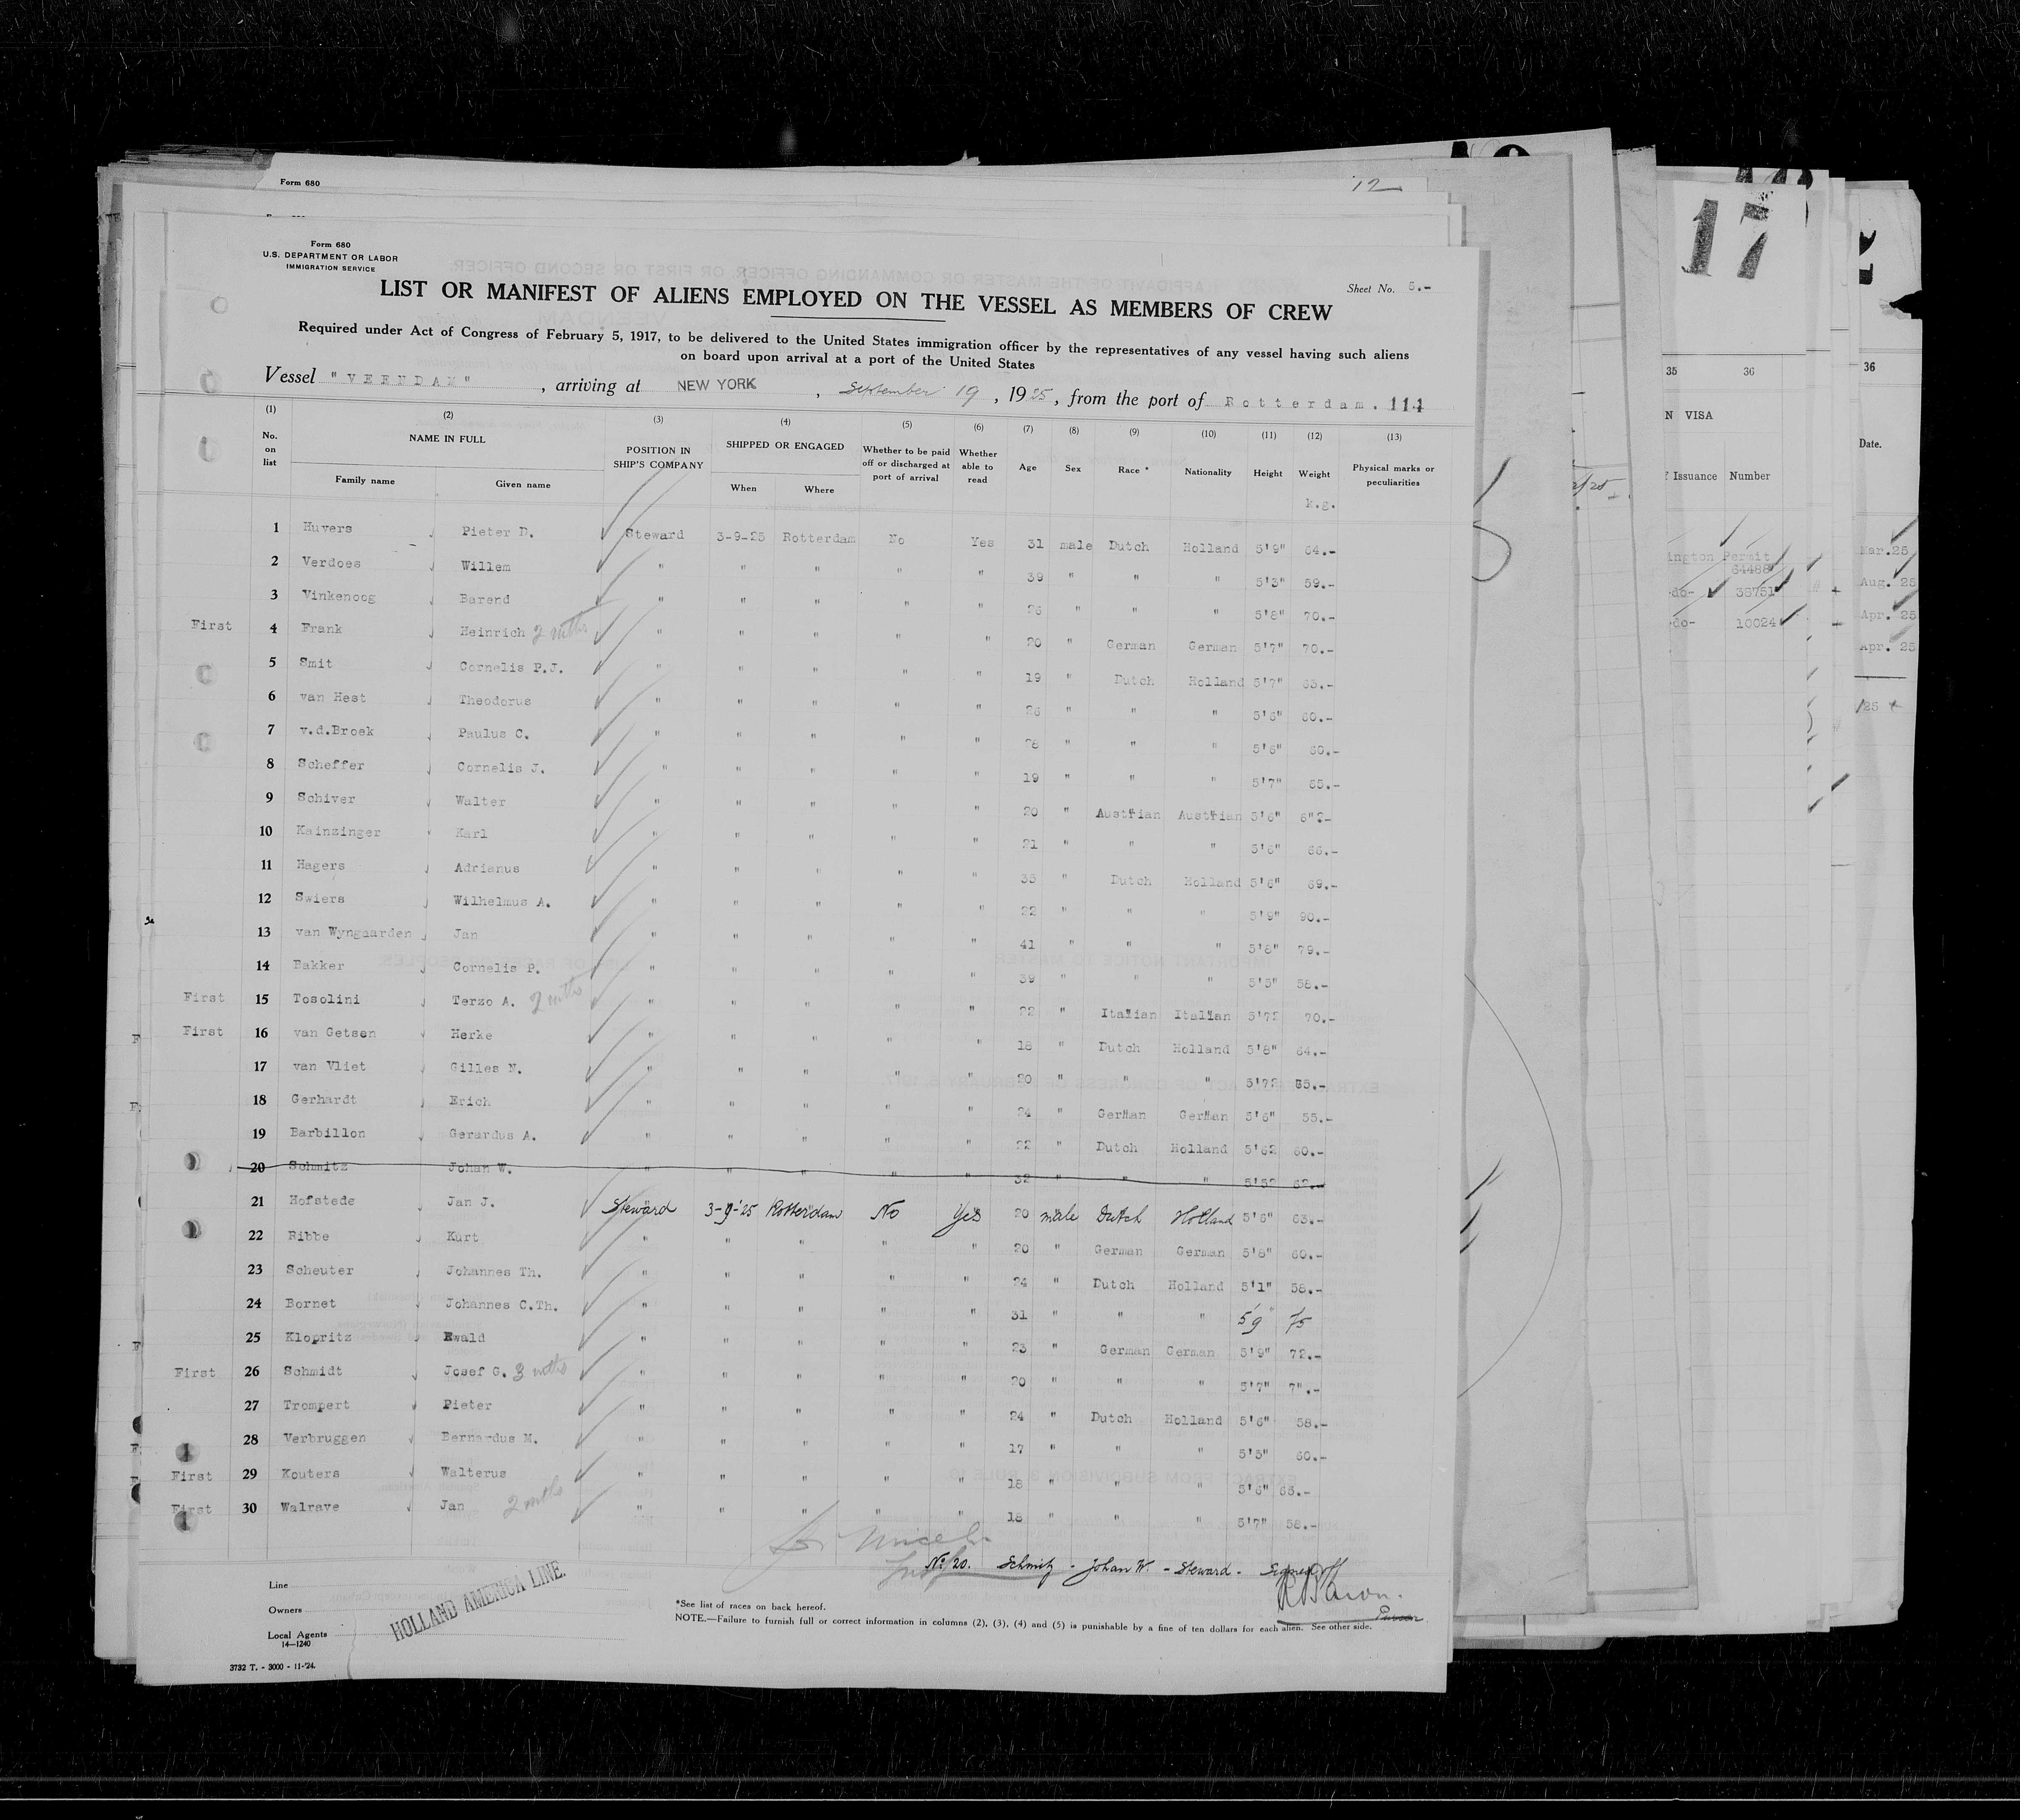 Form 680
12
17
Form 680
U.S. DEPARTMENT OR LABOR
IMMIGRATION SERVICE
Sheet No.
LIST OR MANIFEST OF ALIENS EMPLOYED ON THE VESSEL AS MEMBERS OF CREW
Required under Act of Congress of February 5, 1917, to be delivered to the United States immigration officer by the representatives of any vessel having such aliens
on board upon arrival at a port of the United States
Vessel "VEENDAM", arriving at NEW YORK, September 19, 1925, from the port of Rotterdam. 111
(1) (2) (3) (4) (5) (6) (7) (8) (9) (10) (11) (12) (13)
No. on list NAME IN FULL POSITION IN SHIP'S COMPANY SHIPPED OR ENGAGED Whether to be paid off or discharged at port of arrival Whether able to read Age Sex Race * Nationality Height Weight Physical marks or peculiarities
Family name Given name When Where
k.g.
1 Huvers Pieter D. Steward 3-9-25 Rotterdam No Yes 31 male Dutch Holland 5'9" 64.-
2 Verdoes Willem " " " " " 39 " " " 5'3" 59.-
3 Vinkenoog Barend " " " " " 26 " " " 5'8" 70.-
First 4 Frank Heinrich 2 mths " " " " " 20 " German German 5'7" 70.-
5 Smit Cornelis P.J. " " " " " 19 " Dutch Holland 5'7" 63.-
6 van Hest Theodorus " " " " " 26 " " " 5'6" 60.-
7 v.d.Broek Paulus C. " " " " " 28 " " " 5'6" 60.-
8 Scheffer Cornelis J. " " " " " 19 " " " 5'7" 65.-
9 Schiver Walter " " " " " 20 " Austrian Austrian 5'6" 6"2-
10 Kainzinger Karl " " " " " 21 " " " 5'6" 66.-
11 Hagers Adrianus " " " " " 35 " Dutch Holland 5'6" 69.-
12 Swiers Wilhelmus A. " " " " " 22 " " " 5'9" 90.-
13 van Wyngaarden Jan " " " " " 41 " " " 5'8" 79.-
14 Bakker Cornelis P. " " " " " 39 " " " 5'5" 58.-
First 15 Tosolini Terzo A. 2 mths " " " " " 22 " Italian Italian 5'72 70.-
First 16 van Getsen Herke " " " " " 18 " Dutch Holland 5'8" 64.-
17 van Vliet Gilles N. " " " " " 20 " " " 5'72 65.-
18 Gerhardt Erich " " " " " 24 " German German 5'6" 55.-
19 Barbillon Gerardus A. " " " " " 22 " Dutch Holland 5'62 60.-
20 Schmitz Johan W. " " " " " 32 " " " 5'52 62.-
21 Hofstede Jan J. Steward 3-9-25 Rotterdam No Yes 20 male Dutch Holland 5'6" 63.-
22 Ribbe Kurt " " " " " 20 " German German 5'8" 60.-
23 Scheuter Johannes Th. " " " " " 24 " Dutch Holland 5'1" 58.-
24 Bornet Johannes C.Th. " " " " " 31 " " " 5'9" 75
25 Klopritz Ewald " " " " " 23 " German German 5'9" 72.-
First 26 Schmidt Josef G. 3 mths " " " " " 20 " " " 5'7" 7".-
27 Trompert Pieter " " " " " 24 " Dutch Holland 5'6" 58.-
28 Verbruggen Bernardus M. " " " " " 17 " " " 5'5" 60.-
First 29 Kouters Walterus " " " " " 18 " " " 5'6" 63.-
First 30 Walrave Jan 2 mths " " " " " 18 " " " 5'7" 58.-
No 20. Schmitz - Johan W. - Steward - Signed off
Line
Owners
Local Agents
HOLLAND AMERICA LINE.
14—1240
*See list of races on back hereof.
NOTE.—Failure to furnish full or correct information in columns (2), (3), (4) and (5) is punishable by a fine of ten dollars for each alien. See other side.
Purser
3732 T. - 3000 - 11-'24.
35 36
N VISA
Issuance Number
Permit
64488
-do- 38751
-do- 10024
36
Date.
Mar.25
Aug. 25
Apr. 25
Apr. 25